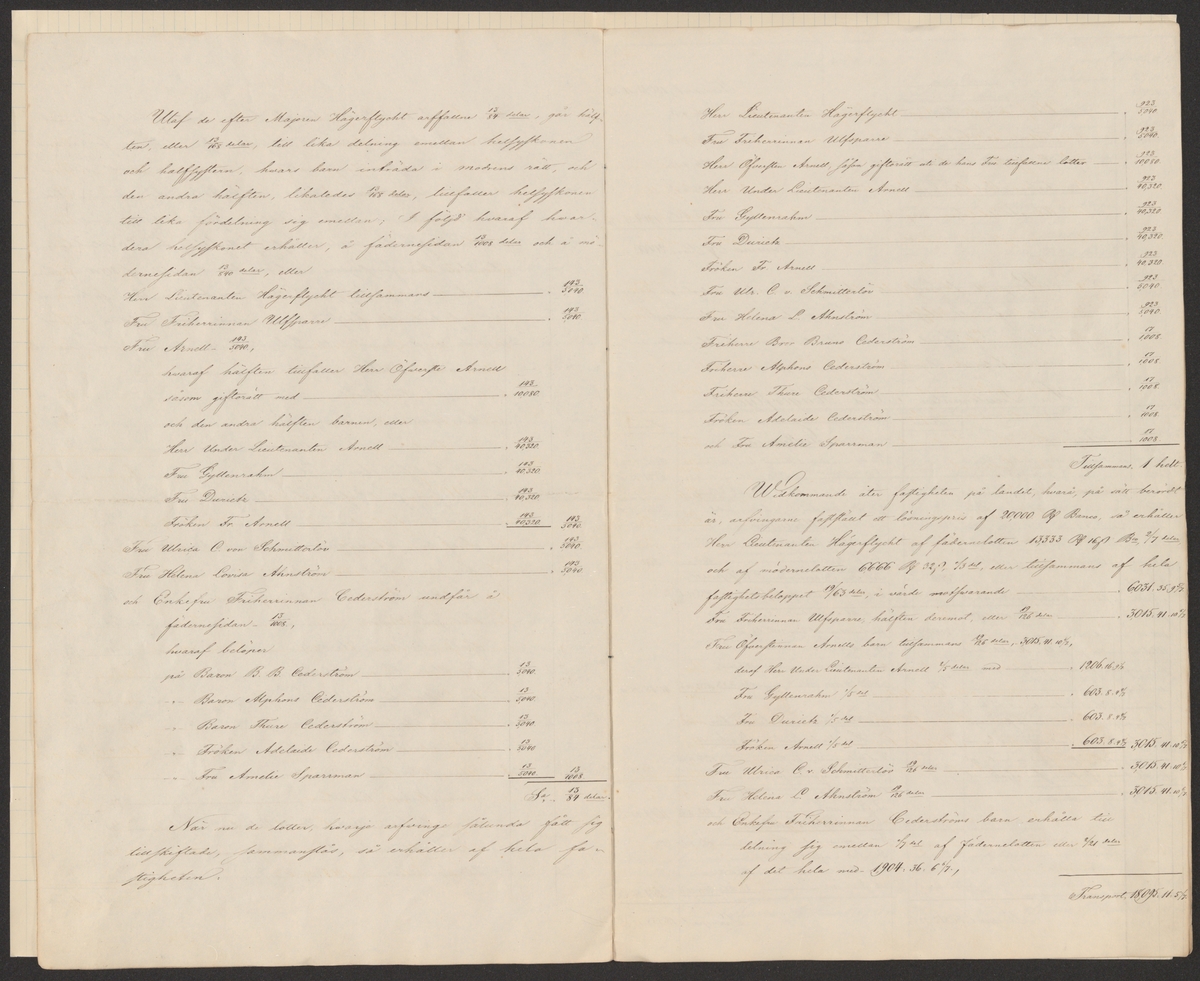 Utaf de efter Majoren Hägerflycht arffallne 13/84 delar, går hälf-
ten, eller 13/168 delar, till lika delning emellan helsyskonen
och halfsystern, hvars barn inträda i modrens rätt, och
den andra hälften, likaledes 13/168 delar, tillfaller helsyskonen
till lika fördelning sig emellan; I följd hvaraf hvar-
dera helsyskonet erhåller, å fädernesidan 13/1008 delar och å mö-
dernesidan delar, eller
Herr Lieutenanten Hägerflycht tillsammans 193/5040
Fru Friherrinnan Ulfsparre 193/5040
Fru Arnell 193/5040,
hvaraf hälften tillfaller Herr Öfverste Arnell
såsom giftorätt med 193/10080
och den andra hälften barnen, eller
Herr Under Lieutenanten Arnell 193/40,320
Fru Gyllenrahm 193/40,320
Fru Durietz 193/40,320
Fröken Fr. Arnell 193/40,320 193/5040
Fru Ulrica C. von Schmitterlöw 193/5040
Fru Helena Lovisa Ahnström 193/5040
och Enkefru Friherrinnan Cederström undfår å
fädernesidan 13/1008,
hvaraf belöper
på Baron B. B. Cederström 13/5040
" Baron Alphons Cederström 13/5040
" Baron Thure Cederström 13/5040
" Fröken Adelaide Cederström 13/5040
" Fru Amelie Sparrman 13/5040 13/1008
Sa 13/84 delar.
När nu de lotter, hvarje arfvinge sålunda fått sig
tillskiftade, sammanslås, så erhåller af hela fa-
stigheten.
Herr Lieutenanten Hägerflycht 923/5040
Fru Friherrinnan Ulfsparre 923/5040
Herr Öfversten Arnell, såsom giftorätt uti de hans Fru tillfallne lotter 923/10080
Herr Under Lieutenanten Arnell 923/40,320
Fru Gyllenrahm 923/40,320
Fru Durietz 923/40,320
Fröken Fr. Arnell 923/40,320
Fru Ulr. C. v. Schmitterlöw 923/5040
Fru Helena L. Ahnström 923/5040
Friherre Boo Bruno Cederström 17/1008
Friherre Alphons Cederström 17/1008
Friherre Thure Cederström 17/1008
Fröken Adelaide Cederström 17/1008
och Fru Amelie Sparrman 17/1008
Tillsammans 1 helt.
Widkommande åter fastigheten på landet, hvari, på sätt berördt
är, arfvingarne fastställt ett lösningspris af 20,000 Rd Banco, så erhåller
Herr Lieutenanten Hägerflycht af fädernelotten 13333 Rd 16 s Bco 2/7 delar
och af mödernelotten 6666 Rd 32 s 1/3 del, eller tillsammans af hela
fastighetsbeloppet 19/63 delar, i värde motsvarande 6031. 35.
Fru Friherrinnan Ulfsparre, hälften deremot, eller 19/126 delar 3015. 41.
Fru Öfverstinnan Arnells barn tillsammans 19/126 delar, 3015. 41.
deraf Herr Under Lieutenanten Arnell 2/5 delar med 1206. 16.
Fru Gyllenrahm 1/5 del 603. 8.
Fru Durietz 1/5 del 603. 8.
Fröken Arnell 1/5 del 603. 8. 3015. 41.
Fru Ulrica C. v. Schmitterlöw 19/126 delar 3015. 41.
Fru Helena L. Ahnström 19/126 delar 3015. 41.
och Enkefru Friherrinnan Cederströms barn erhålla till
delning sig emellan 1/7 del af fädernelotten eller 2/21 delar
af det hela med 1904. 36. 6 6/7,
Transport 18095. 11. 5 1/7